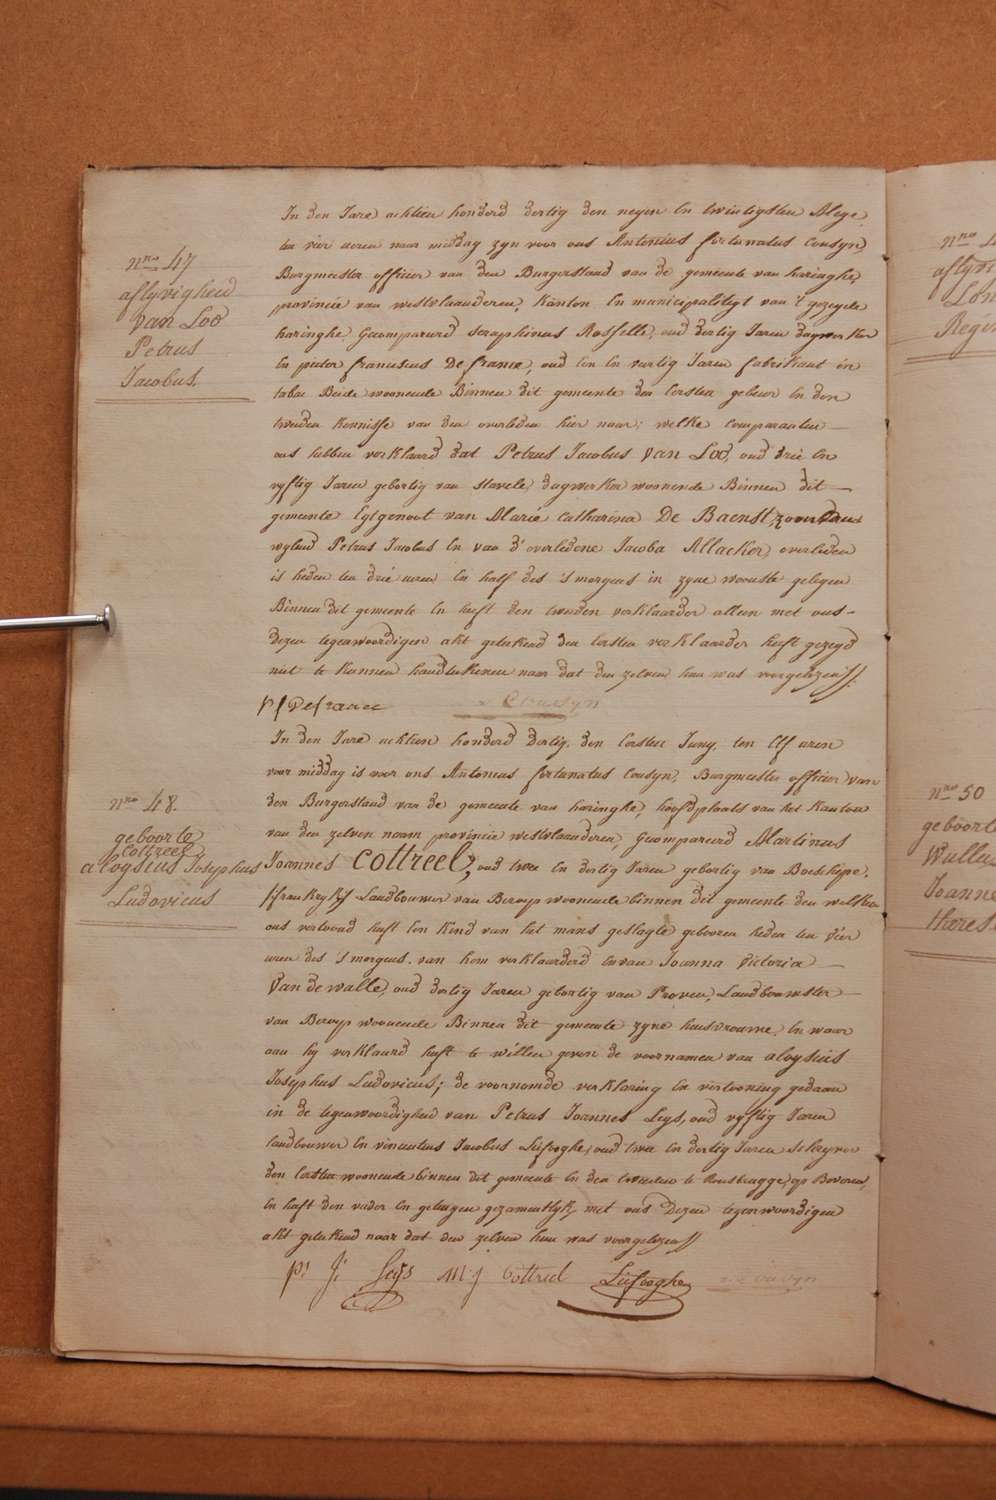 nro 47
aflyvigheid
Van Loo
Petrus
Jacobus.
In den Jare achtien honderd dertig den negen En twintigsten Meye
ten vier ueren naer middag zyn voor ons Antonius fortunatus Cousyn,
Burgmeester officier van den Burgerstand van de gemeente van haringhe,
provincie van westvlaanderen, Kanton En municipalityt van 't gezegde
haringhe, Gecompareerd Seraphinus Rosselle, oud dertig Jaren dagwerker
En pieter franciscus De france, oud Een En veertig Jaren fabrikant in
tabac Beide woonende Binnen dit gemeente den Eersten gebeur En den
tweeden Kennisse van den overleden hier naer; welke comparanten
ons hebben verklaard dat Petrus Jacobus Van Loo, oud drie En
vyftig Jaren geboortig van Stavele, dagwerker woonende Binnen dit
gemeente Egtgenoot van Marie Catharina De Baenst, zoon van
wylend Petrus Jacobus En van d'overledene Jacoba Allacker, overleden
is heden ten drie ueren En half des 's morgens in zyne wooninge gelegen
Binnen dit gemeente En heeft den tweeden verklaarder alleen met ons
dezen tegenwoordigen akt geteekend den Eersten verklaarder heeft gezegd
niet te Kunnen handteekenen naer dat den zelven hun was voorgelezen //.
pf Defrance Cousyn
nro 48.
geboorte
Cottreel
aloysius Josephus
Ludovicus
In den Jare achtien honderd Dertig, den Eersten Juny, ten Elf uren
voor middag is voor ons Antonius fortunatus Cousyn, Burgmeester officier van
den Burgerstand van de gemeente van haringhe, hoofdplaats van het Kanton
van den zelven naam provincie westvlaanderen, Gecompareerd Martinus
Joannes Cottreel, oud twee En dertig Jaren geboortig van Boeschepe,
frankryk Landbouwer van Beroep woonende binnen dit gemeente den welken
ons vertoond heeft Een Kind van het mans geslagte geboren heden ten vier
uren des 's morgens, van hem verklaarderd En van Joanna Victoria
Van de walle, oud dertig Jaren geboortig van Proven, Landbouwster
van Beroep woonende Binnen dit gemeente zyne huisvrouwe, En waer
aan hy verklaard heeft te willen geven de voornamen van aloysius
Josephus Ludovicus; de voornoemde verklaring En vertooning gedaan
in de tegenwoordigheid van Petrus Joannes Leys, oud vyftig Jaren
landbouwer En vincentius Jacobus Liefooghe, oud twee En dertig Jaren Schryver
den Eersten woonende binnen dit gemeente En den tweeden te Rousbrugge, op Beveren,
En heeft den vader En getuigen gezamentlyk met ons Dezen tegenwoordigen
akt geteekend naer dat den zelven hun was voorgelezen //
Pr J: Leys M: J Cottreel Liefooghe Cousyn
nro
nro 50
geboorte
Joanne